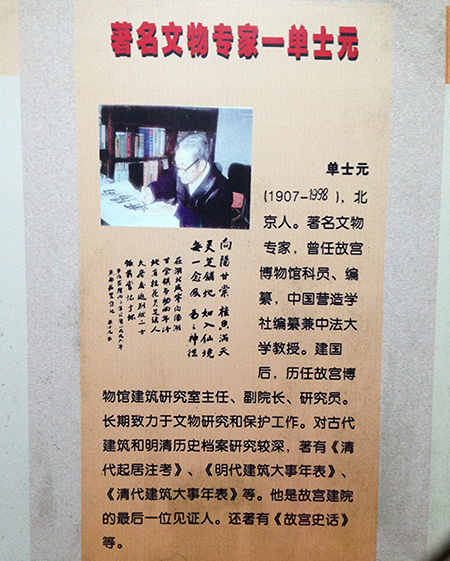 著名文物专家一单士元
单士元
(1907-1998),北
京人。著名文物
专家,曾任故宫
博物馆科员、编
纂,中国营造学
社编纂兼中法大
学教授。建国
后,历任故宫博
物馆建筑研究室主任、副院长、研究员。
长期致力于文物研究和保护工作。对古代
建筑和明清历史档案研究较深,著有《清
代起居注考》、《明代建筑大事年表》、
《清代建筑大事年表》等。他是故宫建院
的最后一位见证人。还著有《故宫史话》
等。
向阳甘棠 桂鱼满天
灵芝铺地 如入仙境
每一念及 为之神往